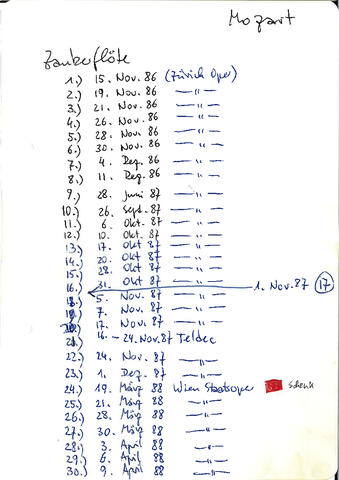 Mozart
Zauberflöte
1.) 15. Nov. 86 (Zürich Oper)
2.) 19. Nov. 86 —"—
3.) 21. Nov. 86 —"—
4.) 26. Nov. 86 —"—
5.) 28. Nov. 86 —"—
6.) 30. Nov. 86 —"—
7.) 4. Dez. 86 —"—
8.) 11. Dez. 86 —"—
9.) 28. Juni 87 —"—
10.) 26. Sept. 87 —"—
11.) 6. Okt. 87 —"—
12.) 10. Okt. 87 —"—
13.) 17. Okt 87 —"—
14.) 20. Okt 87 —"—
15.) 28. Okt 87 —"—
16.) 31. Okt 87 —"—
1. Nov. 87 (17)
18.) 5. Nov. 87 —"—
19.) 7. Nov. 87 —"—
20.) 17. Nov. 87 —"—
21.) 16. — 24. Nov. 87 Teldec
22.) 24. Nov. 87 —"—
23.) 1. Dez. 87 —"—
24.) 19. März 88 Wien Staatsoper Schenk
25.) 21. März 88 —"—
26.) 28. März 88 —"—
27.) 30. März 88 —"—
28.) 3. April 88 —"—
29.) 6. April 88 —"—
30.) 9. April 88 —"—